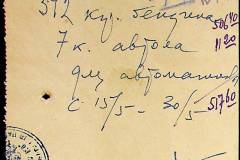 572 кгр. бензина 50640
7 к. автола 1120
для автомашины
с 15/5 – 30/5 51760